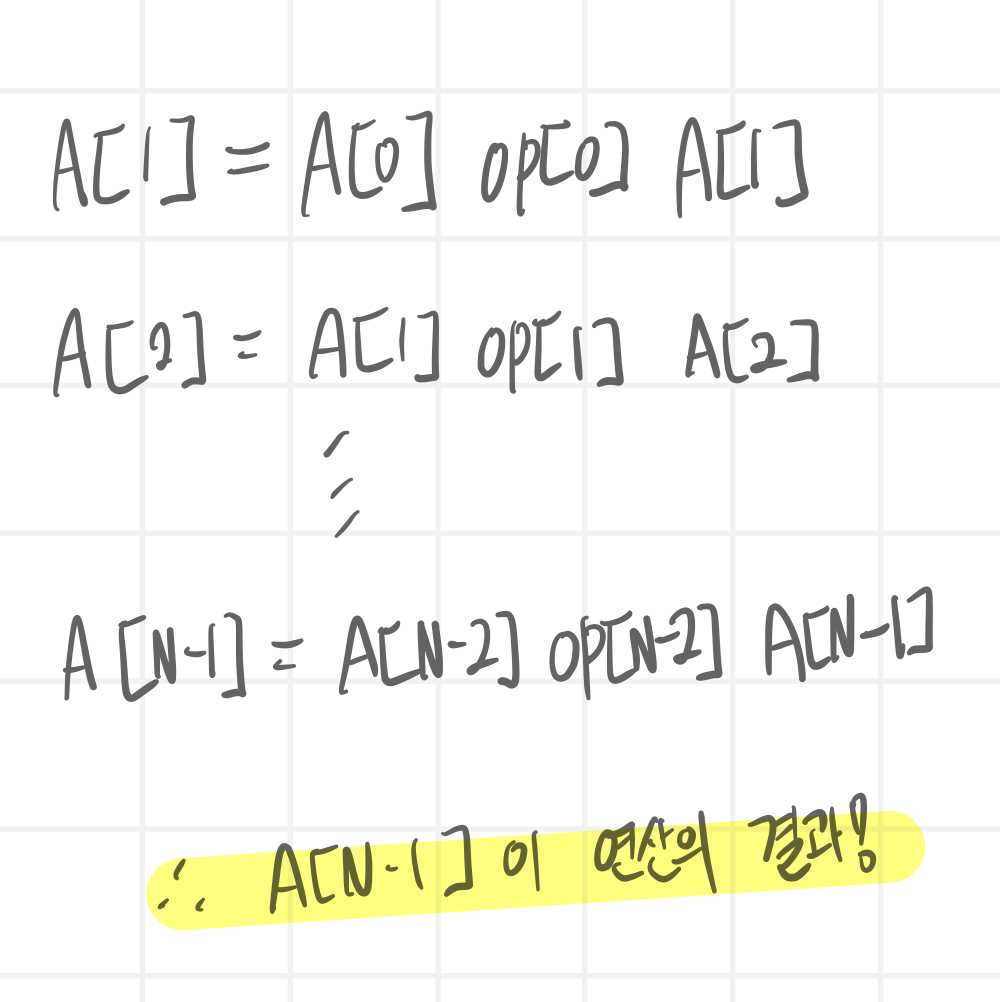 A[1] = A[0] op[0] A[1]
A[2] = A[1] op[1] A[2]
⋮
A[N-1] = A[N-2] op[N-2] A[N-1]
∴ A[N-1] 이 연산의 결과!